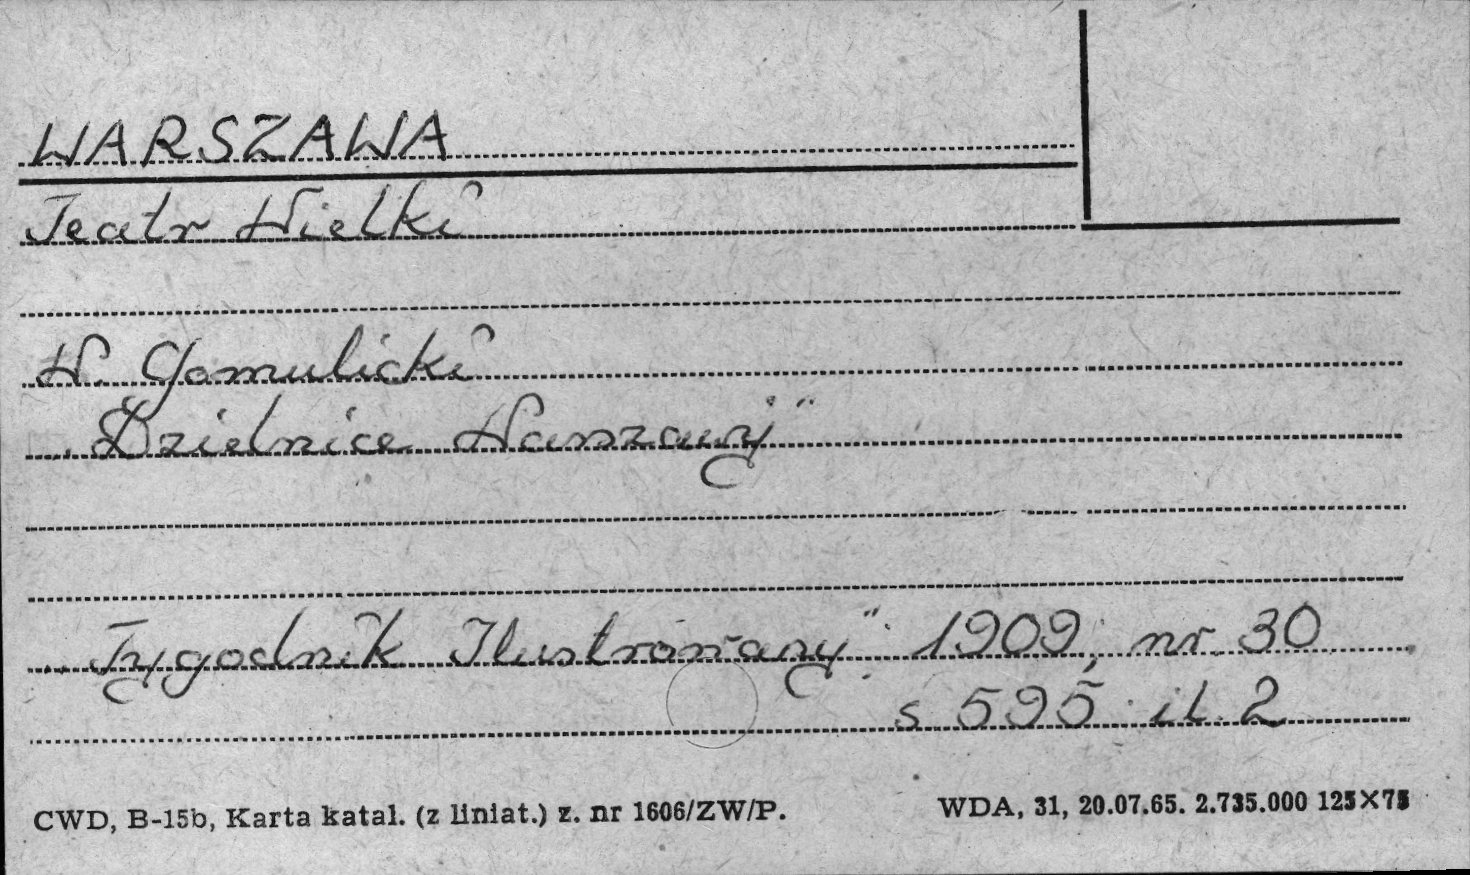 WARSZAWA
Teatr Wielki
W. Gomulicki
„Dzielnice Warszawy"
„Tygodnik Ilustrowany" 1909, nr. 30
s 595 il. 2
CWD, B-15b, Karta katal. (z liniat.) z. nr 1606/ZW/P. WDA, 31, 20.07.65. 2.735.000 125×75